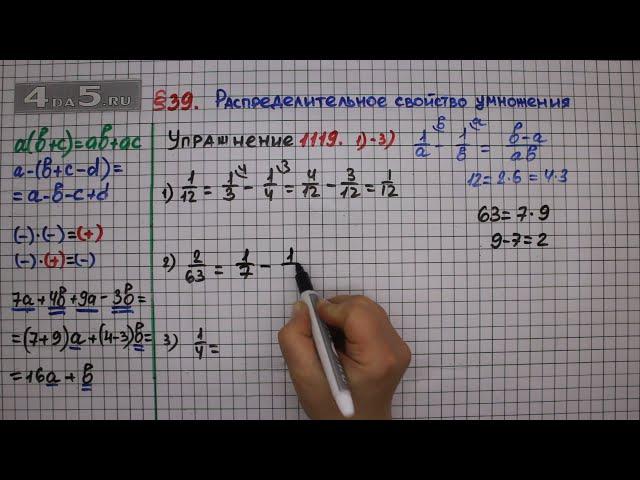 4DA5.RU
§39. Распределительное свойство умножения
a(b+c)=ab+ac
a-(b+c-d)=
=a-b-c+d
(-)·(-)=(+)
(-)·(+)=(-)
7a+4b+9a-3b=
=(7+9)a+(4-3)b=
=16a+b
Упражнение 1119. 1)-3)
1/a ^b - 1/b ^a = (b-a)/(ab)
12=2·6=4·3
1) 1/12 = 1/3 ^4 - 1/4 ^3 = 4/12 - 3/12 = 1/12
63=7·9
9-7=2
2) 2/63 = 1/7 - 1
3) 1/4 =